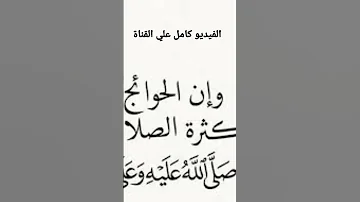 الفيديو كامل علي القناة
وإن الحوائج
كثرة الصلا
صَلَّى اللَّهُ عَلَيْهِ وَعَلَ